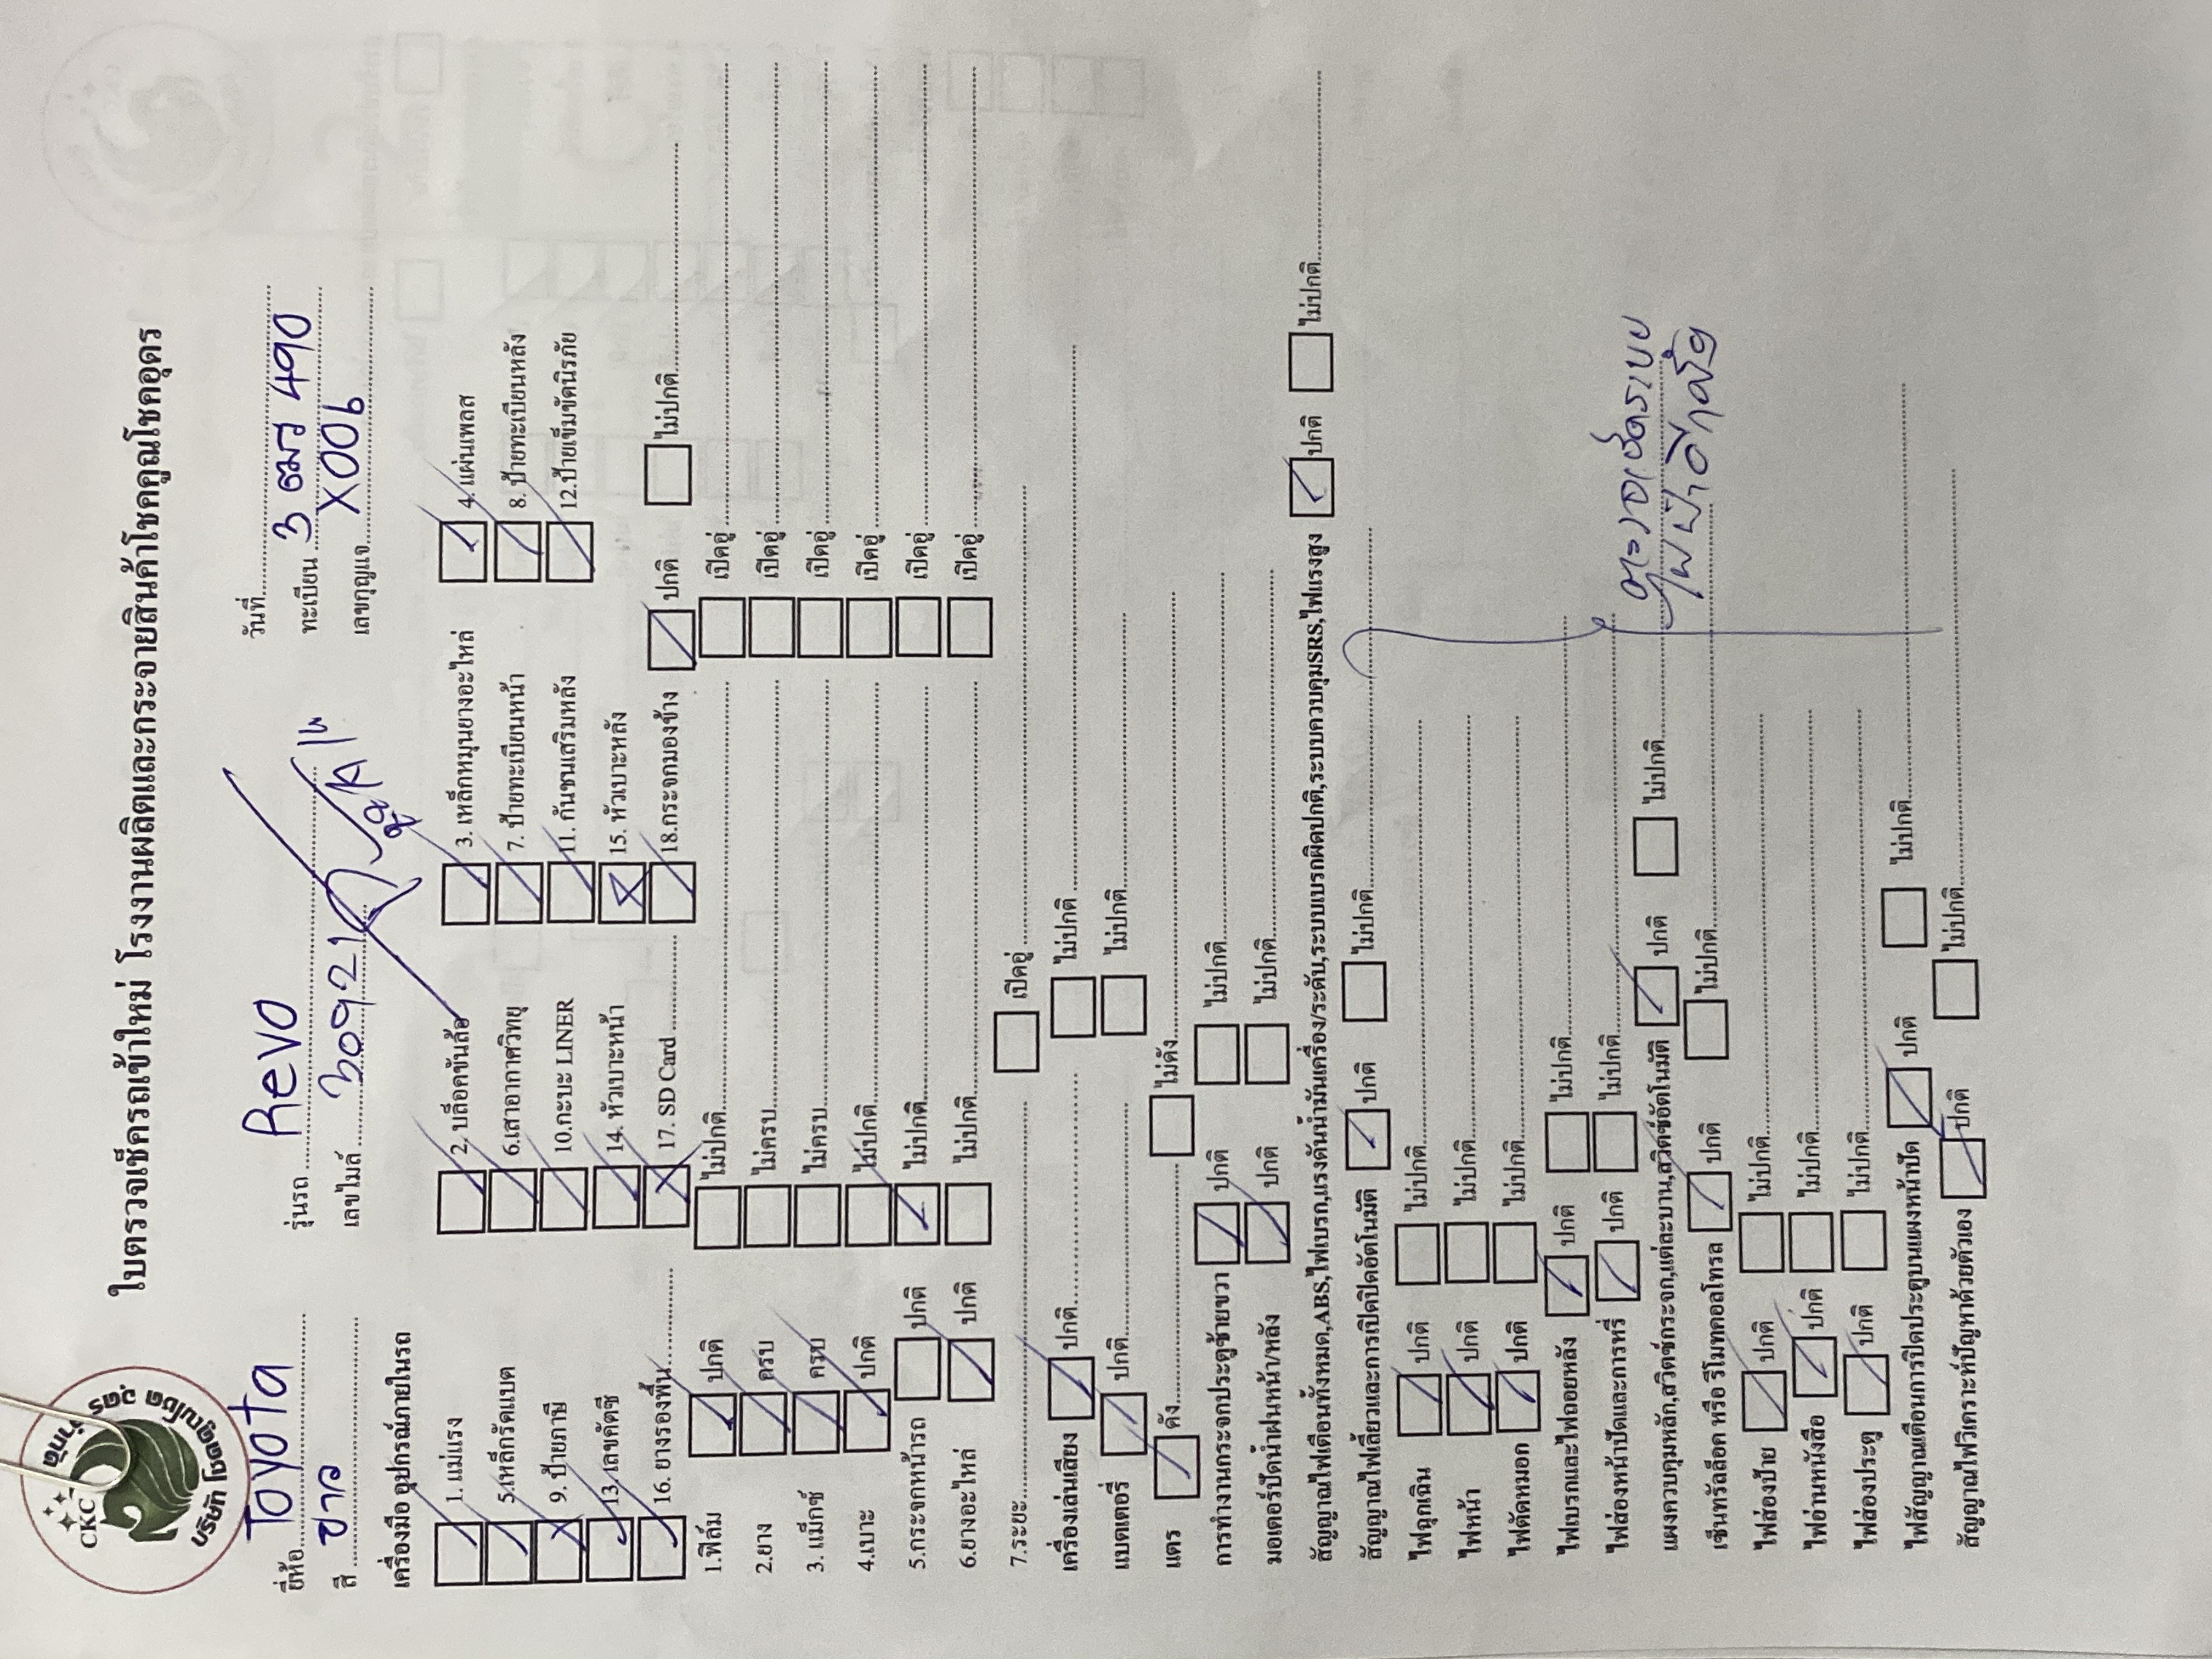 บริษัท โชคคูณโชค อุดร จำกัด
CKC
ใบตรวจเช็ครถเข้าใหม่ โรงงานผลิตและกระจายสินค้าโชคคูณโชคอุดร
ยี่ห้อ Toyota รุ่นรถ Revo วันที่
สี ขาว เลขไมล์ ทะเบียน 3 ฒร 490
เลขกุญแจ X006
เครื่องมือ อุปกรณ์ภายในรถ
1. แม่แรง 2. บล็อคขันล้อ 3. เหล็กหมุนยางอะไหล่ 4. แผ่นเพลส
5.เหล็กรัดแบต 6.เสาอากาศวิทยุ 7. ป้ายทะเบียนหน้า 8. ป้ายทะเบียนหลัง
9. ป้ายภาษี 10.กะบะ LINER 11. กันชนเสริมหลัง 12.ป้ายเข็มขัดนิรภัย
13. เลขคัตซี 14. หัวเบาะหน้า 15. หัวเบาะหลัง
16. ยางรองพื้น 17. SD Card 18.กระจกมองข้าง ปกติ ไม่ปกติ
1.ฟิล์ม ปกติ ไม่ปกติ เปิดอู่
2.ยาง ครบ ไม่ครบ เปิดอู่
3. แม็กซ์ ครบ ไม่ครบ เปิดอู่
4.เบาะ ปกติ ไม่ปกติ เปิดอู่
5.กระจกหน้ารถ ปกติ ไม่ปกติ เปิดอู่
6.ยางอะไหล่ ปกติ ไม่ปกติ เปิดอู่
7.ระยะ เปิดอู่
เครื่องเล่นเสียง ปกติ ไม่ปกติ
แบตเตอรี่ ปกติ ไม่ปกติ
แตร ดัง ไม่ดัง
การทำงานกระจกประตูซ้ายขวา ปกติ ไม่ปกติ
มอเตอร์ปัดน้ำฝนหน้า/หลัง ปกติ ไม่ปกติ
สัญญาณไฟเตือนทั้งหมด,ABS,ไฟเบรก,แรงดันน้ำมันเครื่อง/ระดับ,ระบบเบรกผิดปกติ,ระบบควบคุมSRS,ไฟแรงสูง ปกติ ไม่ปกติ
สัญญาณไฟเลี้ยวและการเปิดปิดอัตโนมัติ ปกติ ไม่ปกติ
ไฟฉุกเฉิน ปกติ ไม่ปกติ
ไฟหน้า ปกติ ไม่ปกติ
ไฟตัดหมอก ปกติ ไม่ปกติ
ไฟเบรกและไฟถอยหลัง ปกติ ไม่ปกติ
ไฟส่องหน้าปัดและการหรี่ ปกติ ไม่ปกติ
แผงควบคุมหลัก,สวิตช์กระจก,แต่ละบาน,สวิตช์อัตโนมัติ ปกติ ไม่ปกติ
เซ็นทรัลล็อค หรือ รีโมทคอลโทรล ปกติ ไม่ปกติ
ไฟส่องป้าย ปกติ ไม่ปกติ
ไฟอ่านหนังสือ ปกติ ไม่ปกติ
ไฟส่องประตู ปกติ ไม่ปกติ
ไฟสัญญาณเตือนการปิดประตูบนแผงหน้าปัด ปกติ ไม่ปกติ
สัญญาณไฟวิเคราะห์ปัญหาด้วยตัวเอง ปกติ ไม่ปกติ